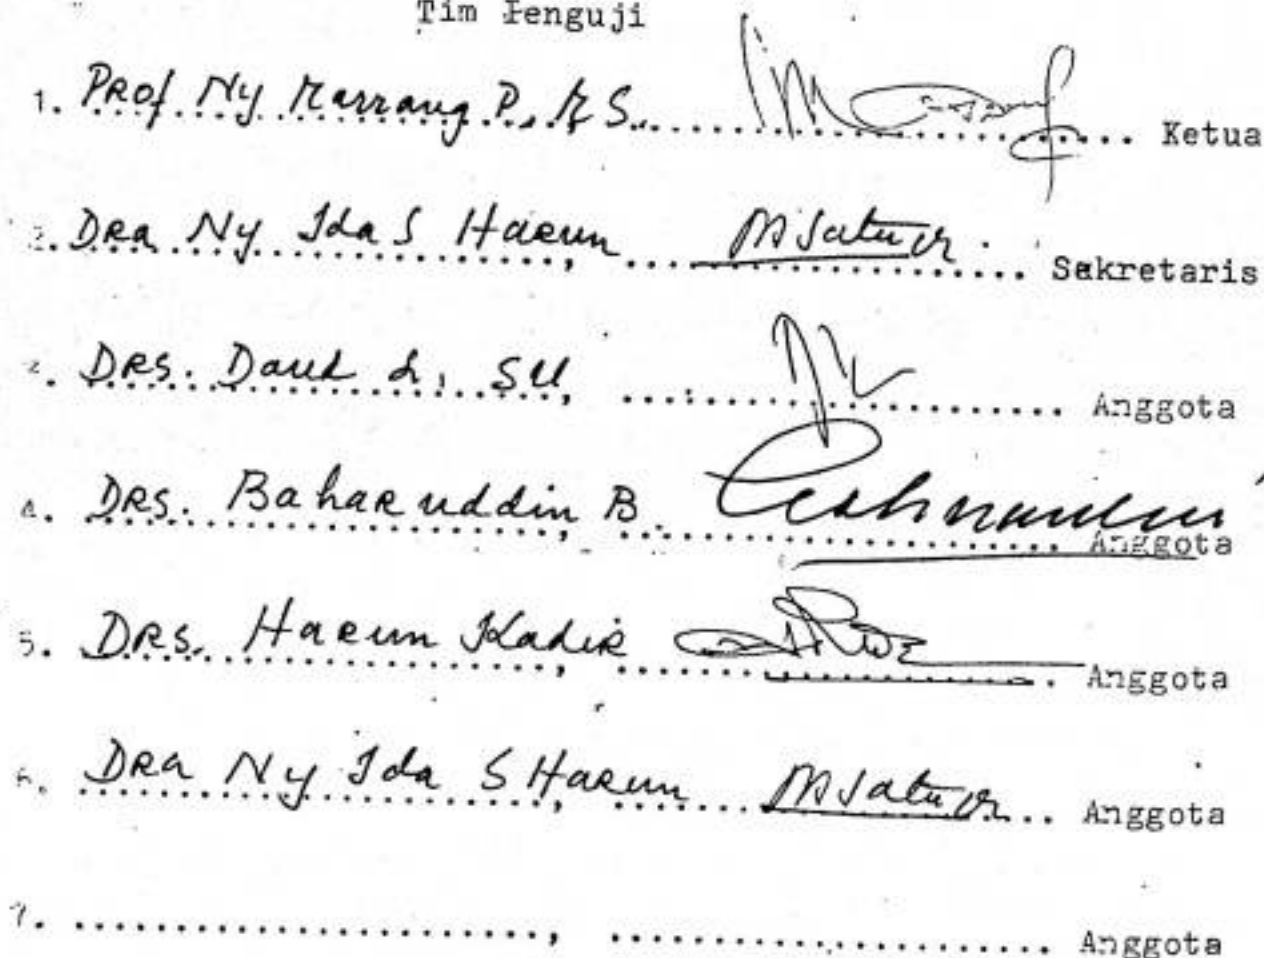 Tim Penguji
1. Prof Ny Marrang P, M S. Ketua
2. Dra Ny Ida S Harun, Sekretaris
3. Drs. Daud L, SU, Anggota
4. Drs. Baharuddin B. Anggota
5. Drs. Harun Kadir, Anggota
6. Dra Ny Ida S Harun, Anggota
7. ...................., .................... Anggota